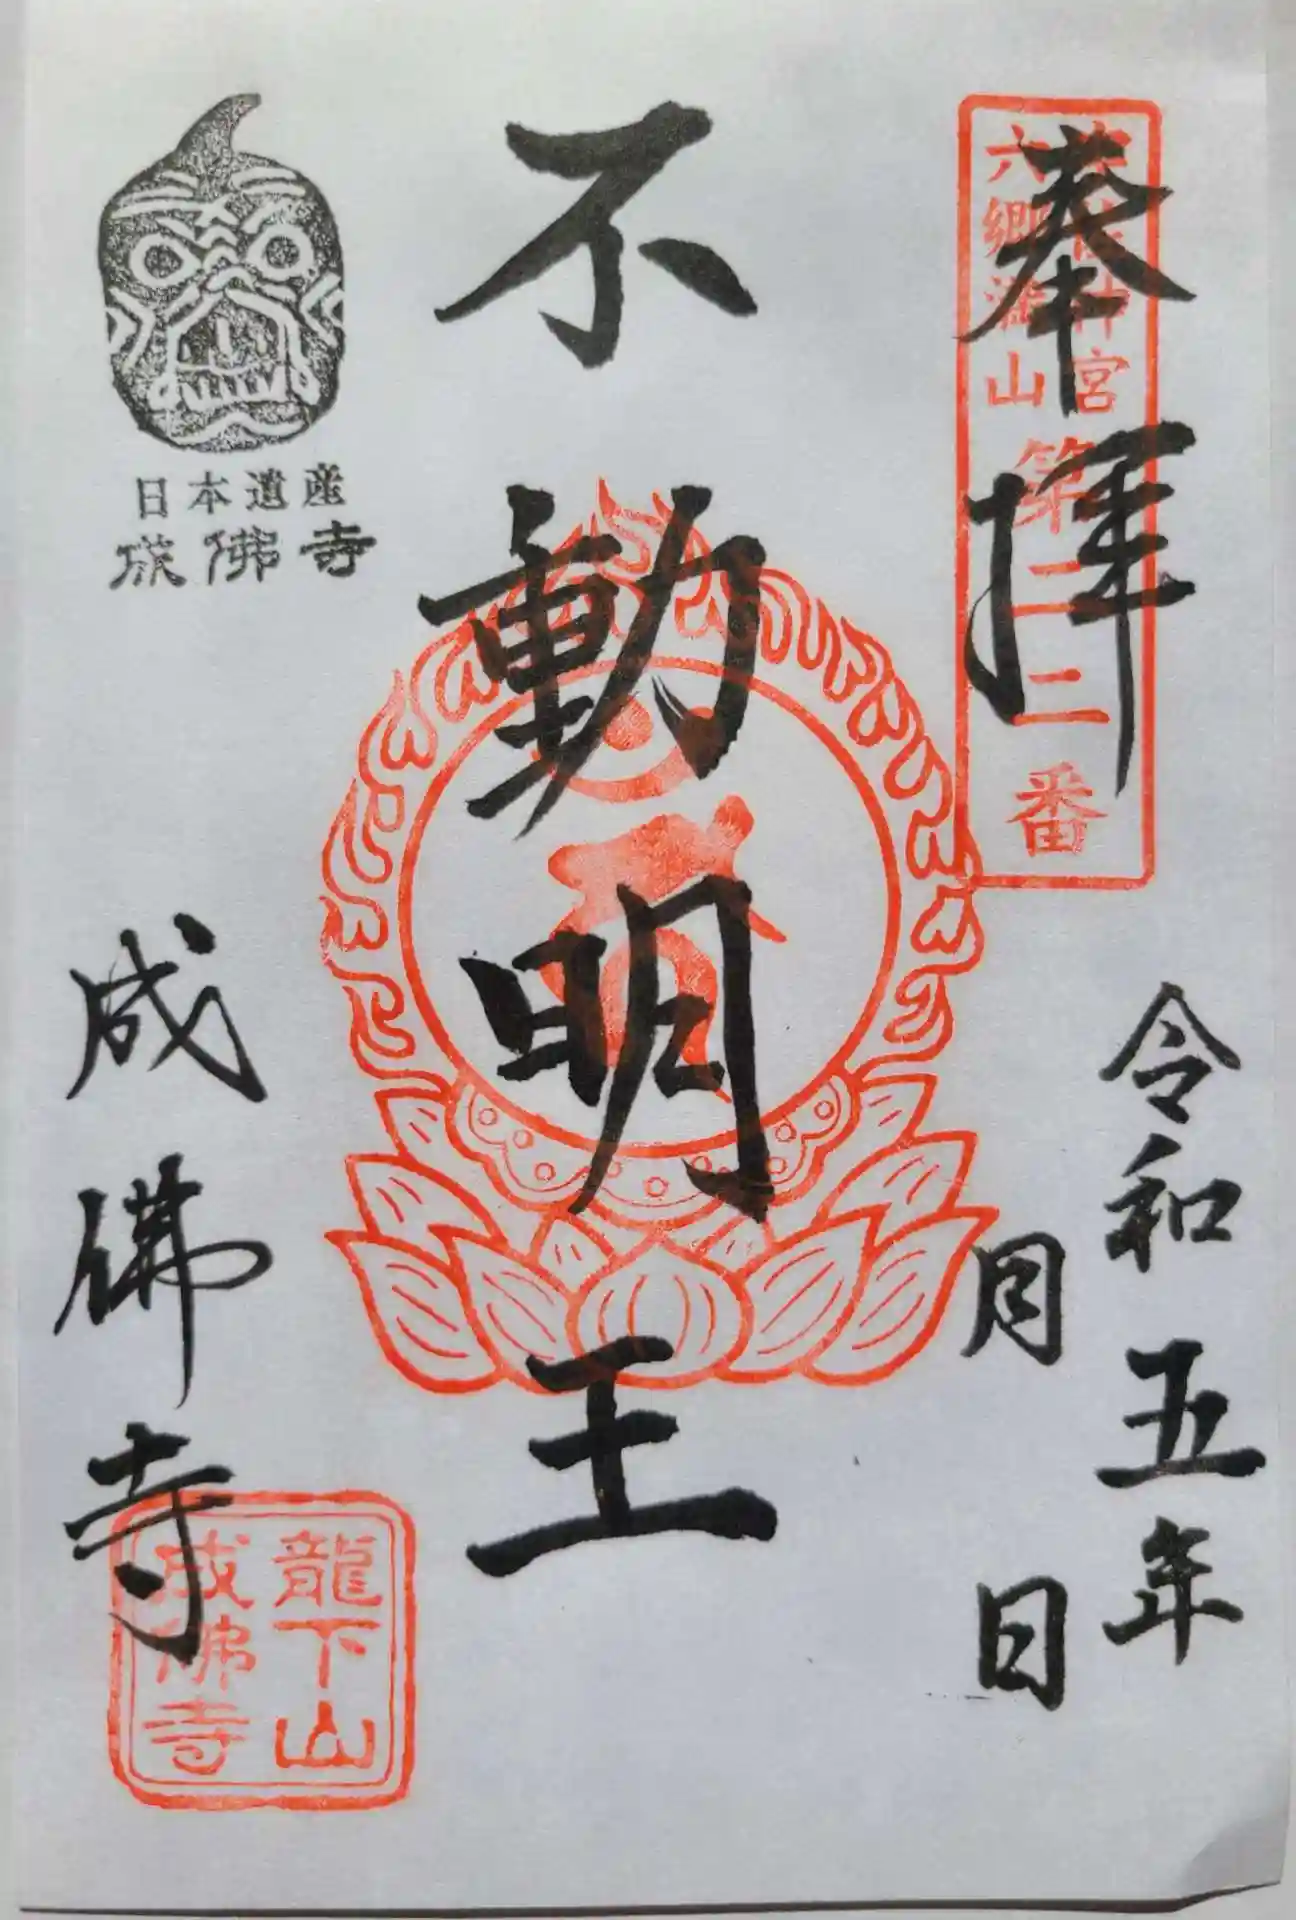 奉拝
宇佐神宮
六郷満山
第二二番
令和五年
月日
不動明王
日本遺産
成佛寺
成佛寺
龍下山
成佛寺